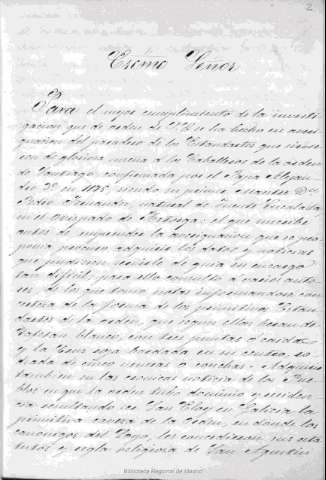 2
Exсmo Señor
Para el mejor cumplimiento de la investi
gacion que de orden de V.E. se ha hecho en averi
guacion del paradero de los Estandartes que sirvie
ron de gloriosa enseña á los Caballeros de la orden
de Santiago, confirmada por el Papa Alejan
dro 3º en 1175, siendo su primer Maestre Dn
Pedro Fernandez natural de Fuente Encalada
en el Obispado de Astorga: el que suscribe
antes de emprender la averiguacion que se pro
ponia procuró adquirir los datos y noticias
que pudieran servirle de guia en encargo
tan dificil; para ello consultó á varios auto
res de los que tomó notas informandose con
certeza de la forma de los primitivos Estan
dartes de la orden, que segun ellos heran de
blanco, con tres puntas ó cardos
y la Cruz roja bordada en su centro, ro
deada de cinco veneras ó conchas. Adquirió
tambien en las cronicas noticia de los Pue
blos en que la orden tubo dominio y residen
cia resultando ser San Eloy en Galicia la
primitiva casa de la Orden, en donde los
canonigos del Loyo, les concedieron sus esta
tutos y regla religiosa de San Agustin
Biblioteca Regional de Madrid